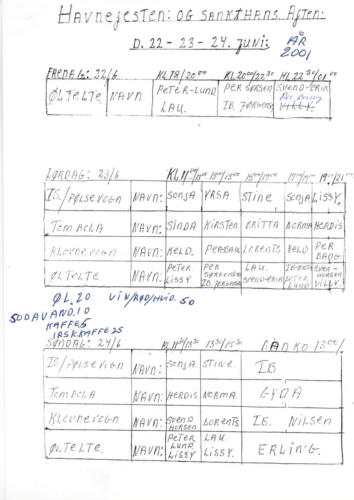 HAVNEFESTEN: OG SANKTHANS AFTEN:
D. 22 - 23 - 24. JUNI: ÅR 2001
FREDAG: 22/6 KL 18/20 00 KL 20 00/22 30 KL 22 30/01 00
ØLTELTE NAVN PETER-LUND LAU. PER SØRENSEN IB. JØRGENSEN SVEND-ERIK
LØRDAG: 23/6
IS/PØLSEVOGN NAVN: SONJA YRSA. STINE SONJA LISSY.
TOMBOLA NAVN: SINDA KIRSTEN BRITTA NORMA HERDIS
KLOVNEVOGN NAVN: KELD. LORENTS KELD PER BAGG
ØLTELTE NAVN: PETER LISSY. PER SØRENSEN IB. JØRGENSEN LAU. SVEND-ERIK PETER LUND SVEN-HORSEN VILLY.
ØL. 20 VIN/RØD/HVID. 50
SODAVAND. 10
KAFFE 5
IRSK KAFFE 25
SØNDAG: 24/6 BANKO 13 00
IS/PØLSEVOGN NAVN: SONJA STINE. IB
TOMBOLA NAVN: HERDIS NORMA. GYDA
KLOVNEVOGN NAVN: SVEND HORSEN LORENTS IB. NILSEN
ØLTELTE. NAVN: PETER LUND LISSY. LAU. LISSY. ERLING.